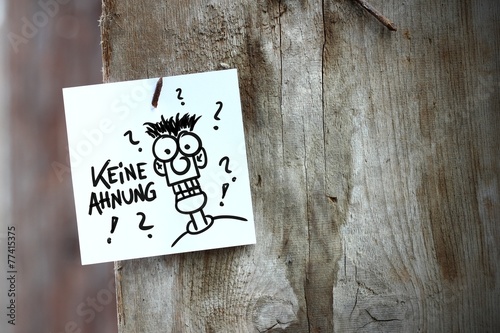 KEINE
AHNUNG
? ? ? ? ! ! ? ?
©77415375